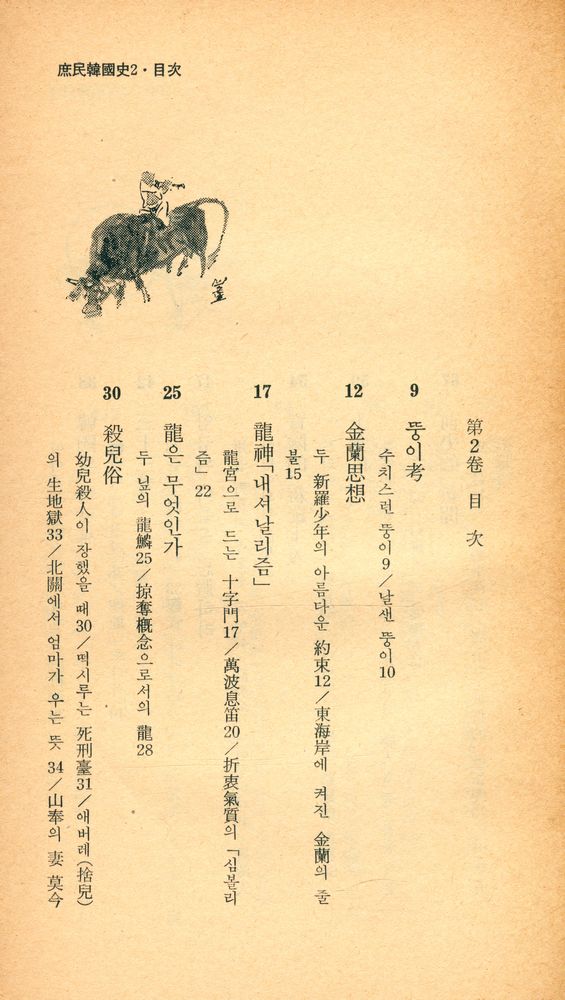 庶民韓國史2·目次
第2卷 目 次
9 뚱이考
수치스런 뚱이9/날샌 뚱이10
12 金蘭思想
두 新羅少年의 아름다운 約束12/東海岸에 켜진 金蘭의 줄
불15
17 龍神「내셔날리즘」
龍宮으로 드는 十字門17/萬波息笛20/折衷氣質의 「심볼리
즘」22
25 龍은 무엇인가
두 닢의 龍鱗25/掠奪槪念으로서의 龍28
30 殺兒俗
幼兒殺人이 장했을 때30/떡시루는 死刑臺31/애버레(捨兒)
의 生地獄33/北關에서 엄마가 우는 뜻 34/山奉의 妻 莫今